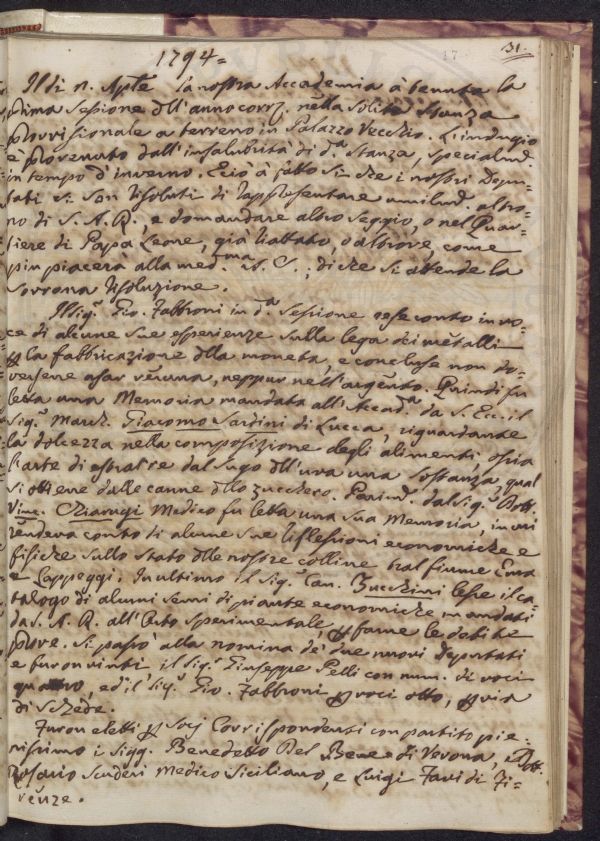 31.
1794=
Il dì n. Aple la nostra Accademia à tenuta la
prima Sessione dll'anno corrz. nella solita stanza
provvisionale a terreno in Palazzo Vecchio. L'indugio
è provenuto dall'insalubrità di d.ª stanza, specialmd.
in tempo d'inverno. Ciò à fatto sì che i nostri Depu-
tati si son risoluti di rappresentare umilmd. al tro-
no di S. A. R., e domandare altro seggio, o nel Quar-
tiere di Papa Leone, già trattato, o altrove, come
più piacerà alla med.ma R. S.; di che si attende la
sovrana risoluzione.
Il Sig.r Gio. Fabbroni in d.ª Sessione rese conto in vo-
ce di alcune sue esperienze sulla lega dei metalli
p la fabbricazione dlla moneta, e concluse non do-
versene a far veruna, neppur nell'argento. Quindi fu
letta una Memoria mandata all'Accad.ª da S. Ecc. il
Sig.r March. Giacomo Sardini di Lucca, riguardante
la dolcezza nella composizione degli alimenti, ossia
l'arte di estrarre dal sugo dll'uva una sostanza qual
si ottiene dalle canne dllo zucchero. Parimd. dal Sig.r Dott.
Vinc. Chiarugi Medico fu letta una sua Memoria, in cui
rendeva conto di alcune sue riflessioni economiche e
fisiche sullo stato dlle nostre colline tral fiume Ema
e Lappeggi. In ultimo il Sig.r Can. Zucchini lesse il ca-
talogo di alcuni semi di piante economiche, mandati
da S. A. R. all'Orto sperimentale, p farne le debite
prove. Si passò alla nomina de' due nuovi Deputati
e furon vinti il Sig.r Giuseppe Pelli con num. di voci
quattro, ed il Sig.r Gio. Fabbroni p voci otto, p via
di schede.
Furon eletti p Socj Corrispondenti con partito pie-
nissimo i Sigg. Benedetto Del Bene di Verona, Dott.
Rosario Scuderi Medico Siciliano, e Luigi Tavi di Fi-
renze.